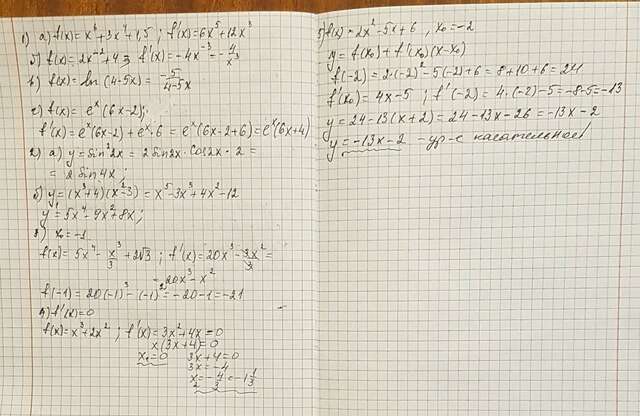 1) а) f(x) = x⁶ + 3x⁴ + 1,5 ; f'(x) = 6x⁵ + 12x³
б) f(x) = 2x⁻² + 4 ; f'(x) = -4x⁻³ = -4/x³
в) f(x) = ln(4-5x) = -5/4-5x
г) f(x) = eˣ(6x-2);
f'(x) = eˣ(6x-2) + eˣ·6 = eˣ(6x-2+6) = eˣ(6x+4)
2) а) y = sin²2x = 2 sin2x · cos2x · 2 =
= 2 sin4x ;
б) y = (x³+4)(x²-3) = x⁵-3x³+4x²-12
y' = 5x⁴ - 9x² + 8x;
3) x₀ = -1
f(x) = 5x⁴ - x³/3 + 2√3 ; f'(x) = 20x³ - 3x²/3 =
= 20x³ - x²
f(-1) = 20(-1)³ - (-1)² = -20-1 = -21
4) f'(x) = 0
f(x) = x³+2x² ; f'(x) = 3x²+4x = 0
x(3x+4) = 0
x₁ = 0 3x+4 = 0
3x = -4
x₂ = -4/3 = -1 1/3
5) f(x) = 2x²-5x+6 , x₀ = -2
y = f(x₀) + f'(x₀)(x-x₀)
f(-2) = 2·(-2)²-5(-2)+6 = 8+10+6 = 24
f'(x₀) = 4x-5 ; f'(-2) = 4·(-2)-5 = -8-5 = -13
y = 24-13(x+2) = 24-13x-26 = -13x-2
y = -13x-2 - ур-е касательной